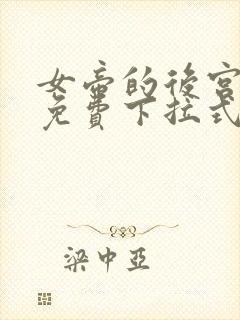 女帝的後宮
免費下拉式
梁中亞